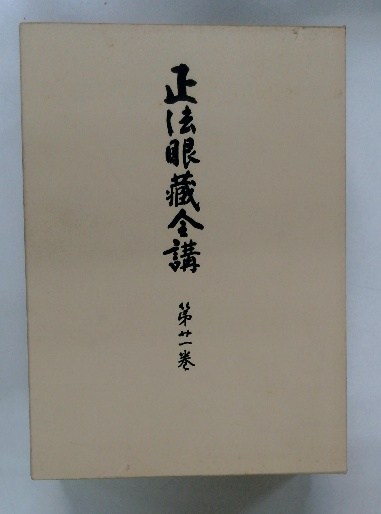 正法眼藏全講
第廿一巻